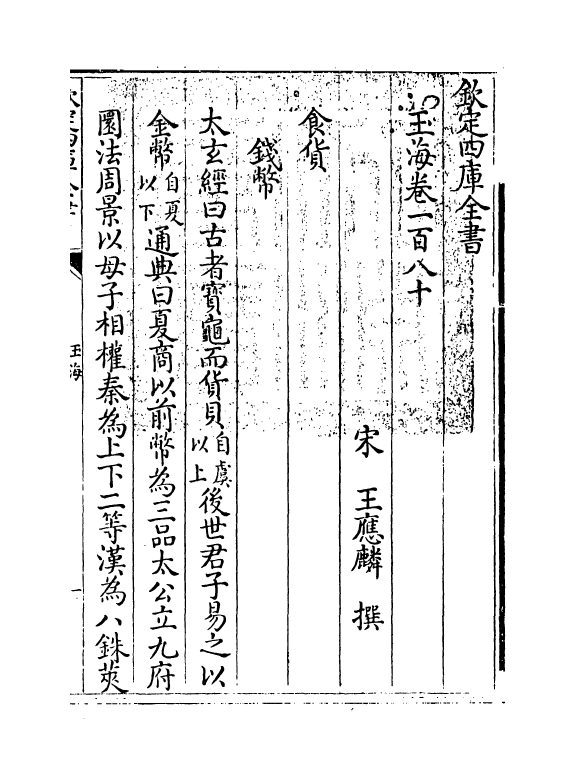 欽定四庫全書
玉海卷一百八十
宋 王應麟 撰
食貨
錢幣
太玄經曰古者寳龜而貨貝自虞以上後世君子易之以
金幣自夏以下通典曰夏商以前幣為三品太公立九府
圜法周景以母子相權秦為上下二等漢為八銖莢
玉海
一